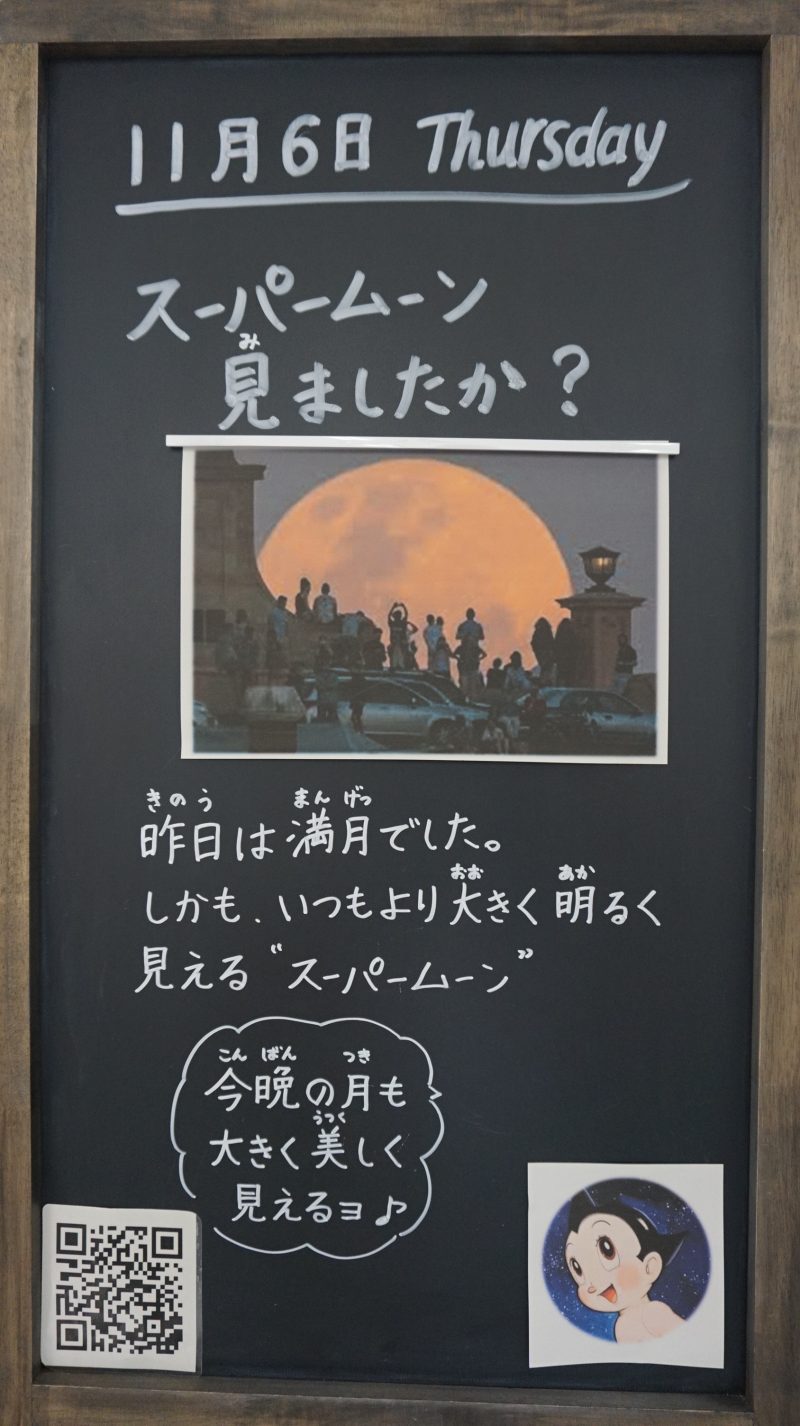 11月6日 Thursday
スーパームーン
み
見ましたか？
きのう まんげつ
昨日は満月でした。
おお あか
しかも、いつもより大きく明るく
見える“スーパームーン”
こんばん つき
今晩の月も
うつく
大きく美しく
見えるヨ♪